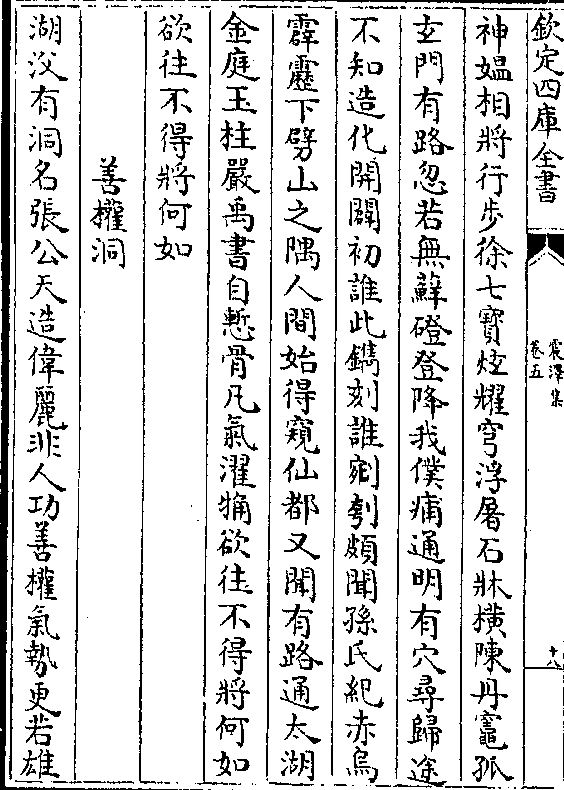 欽定四庫全書
震澤集
卷五
十八
神媼相將行步徐七寶炫耀穹浮屠石牀橫陳丹竈孤
玄門有路忽若無蘚磴登降我僕痡通明有穴尋歸途
不知造化開闢初誰此鐫刻誰剜刳頗聞孫氏紀赤烏
霹靂下劈山之隅人間始得窺仙都又聞有路通太湖
金庭玉柱嚴禹書自慙骨凡氣濯觕欲往不得將何如
欲往不得將何如
善權洞
湖㳇有洞名張公天造偉麗非人功善權氣勢更若雄